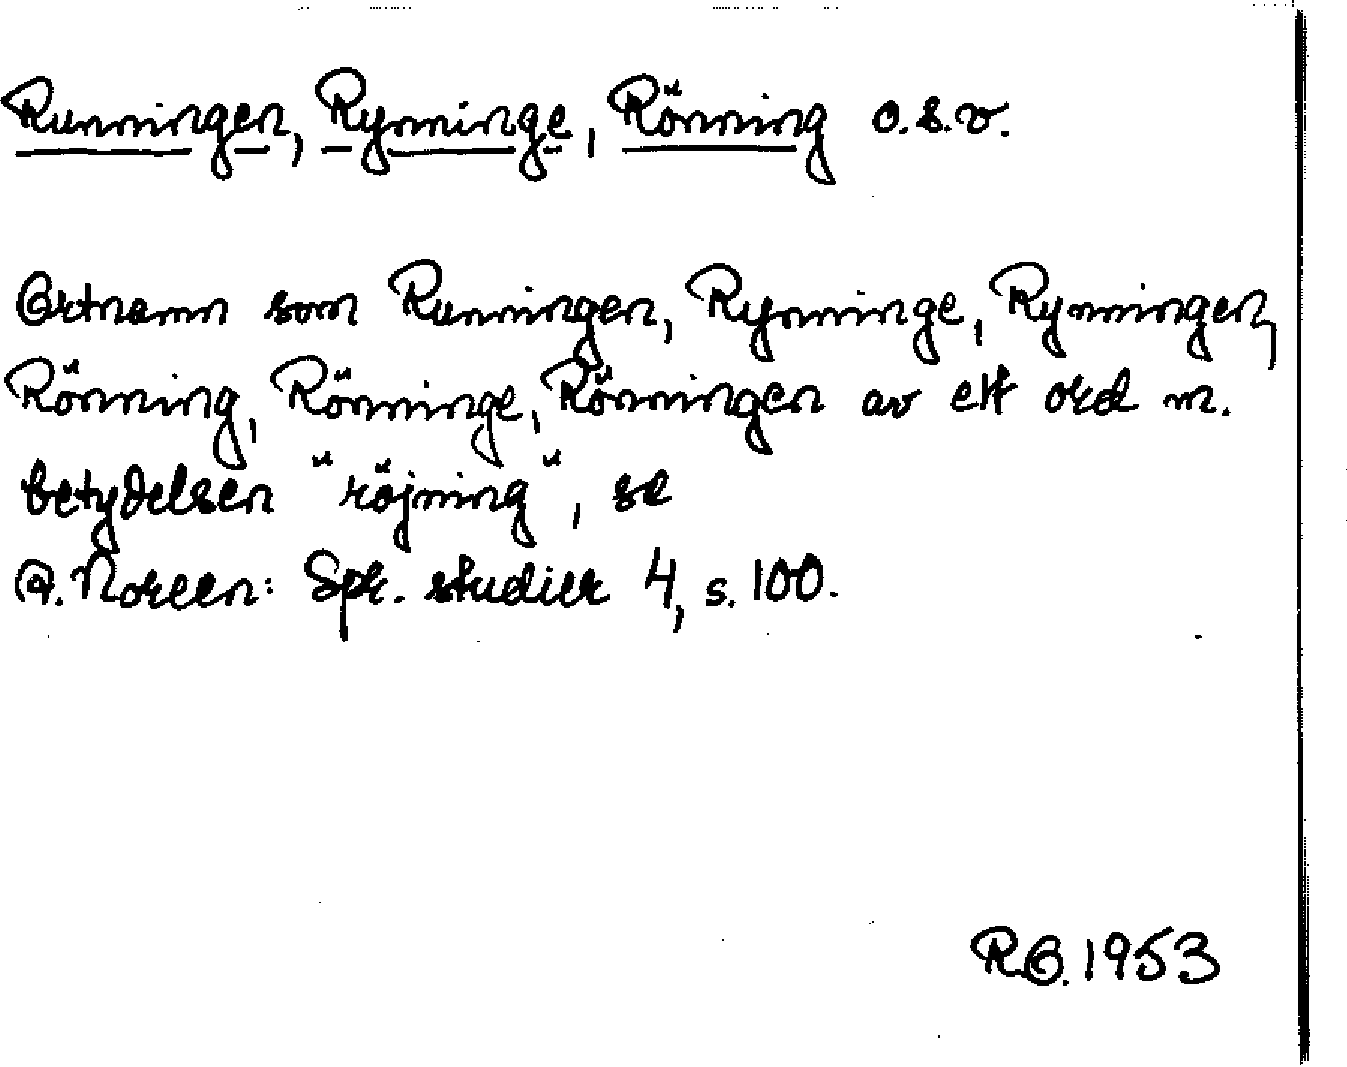 Runningen, Rynninge, Rönning o.s.v.
Ortnamn som Runningen, Rynninge, Rynningen,
Rönning, Rönninge, Rönningen av ett ord m.
betydelsen "röjning", se
A. Noreen: Spr. studier 4, s. 100.
R.O. 1953